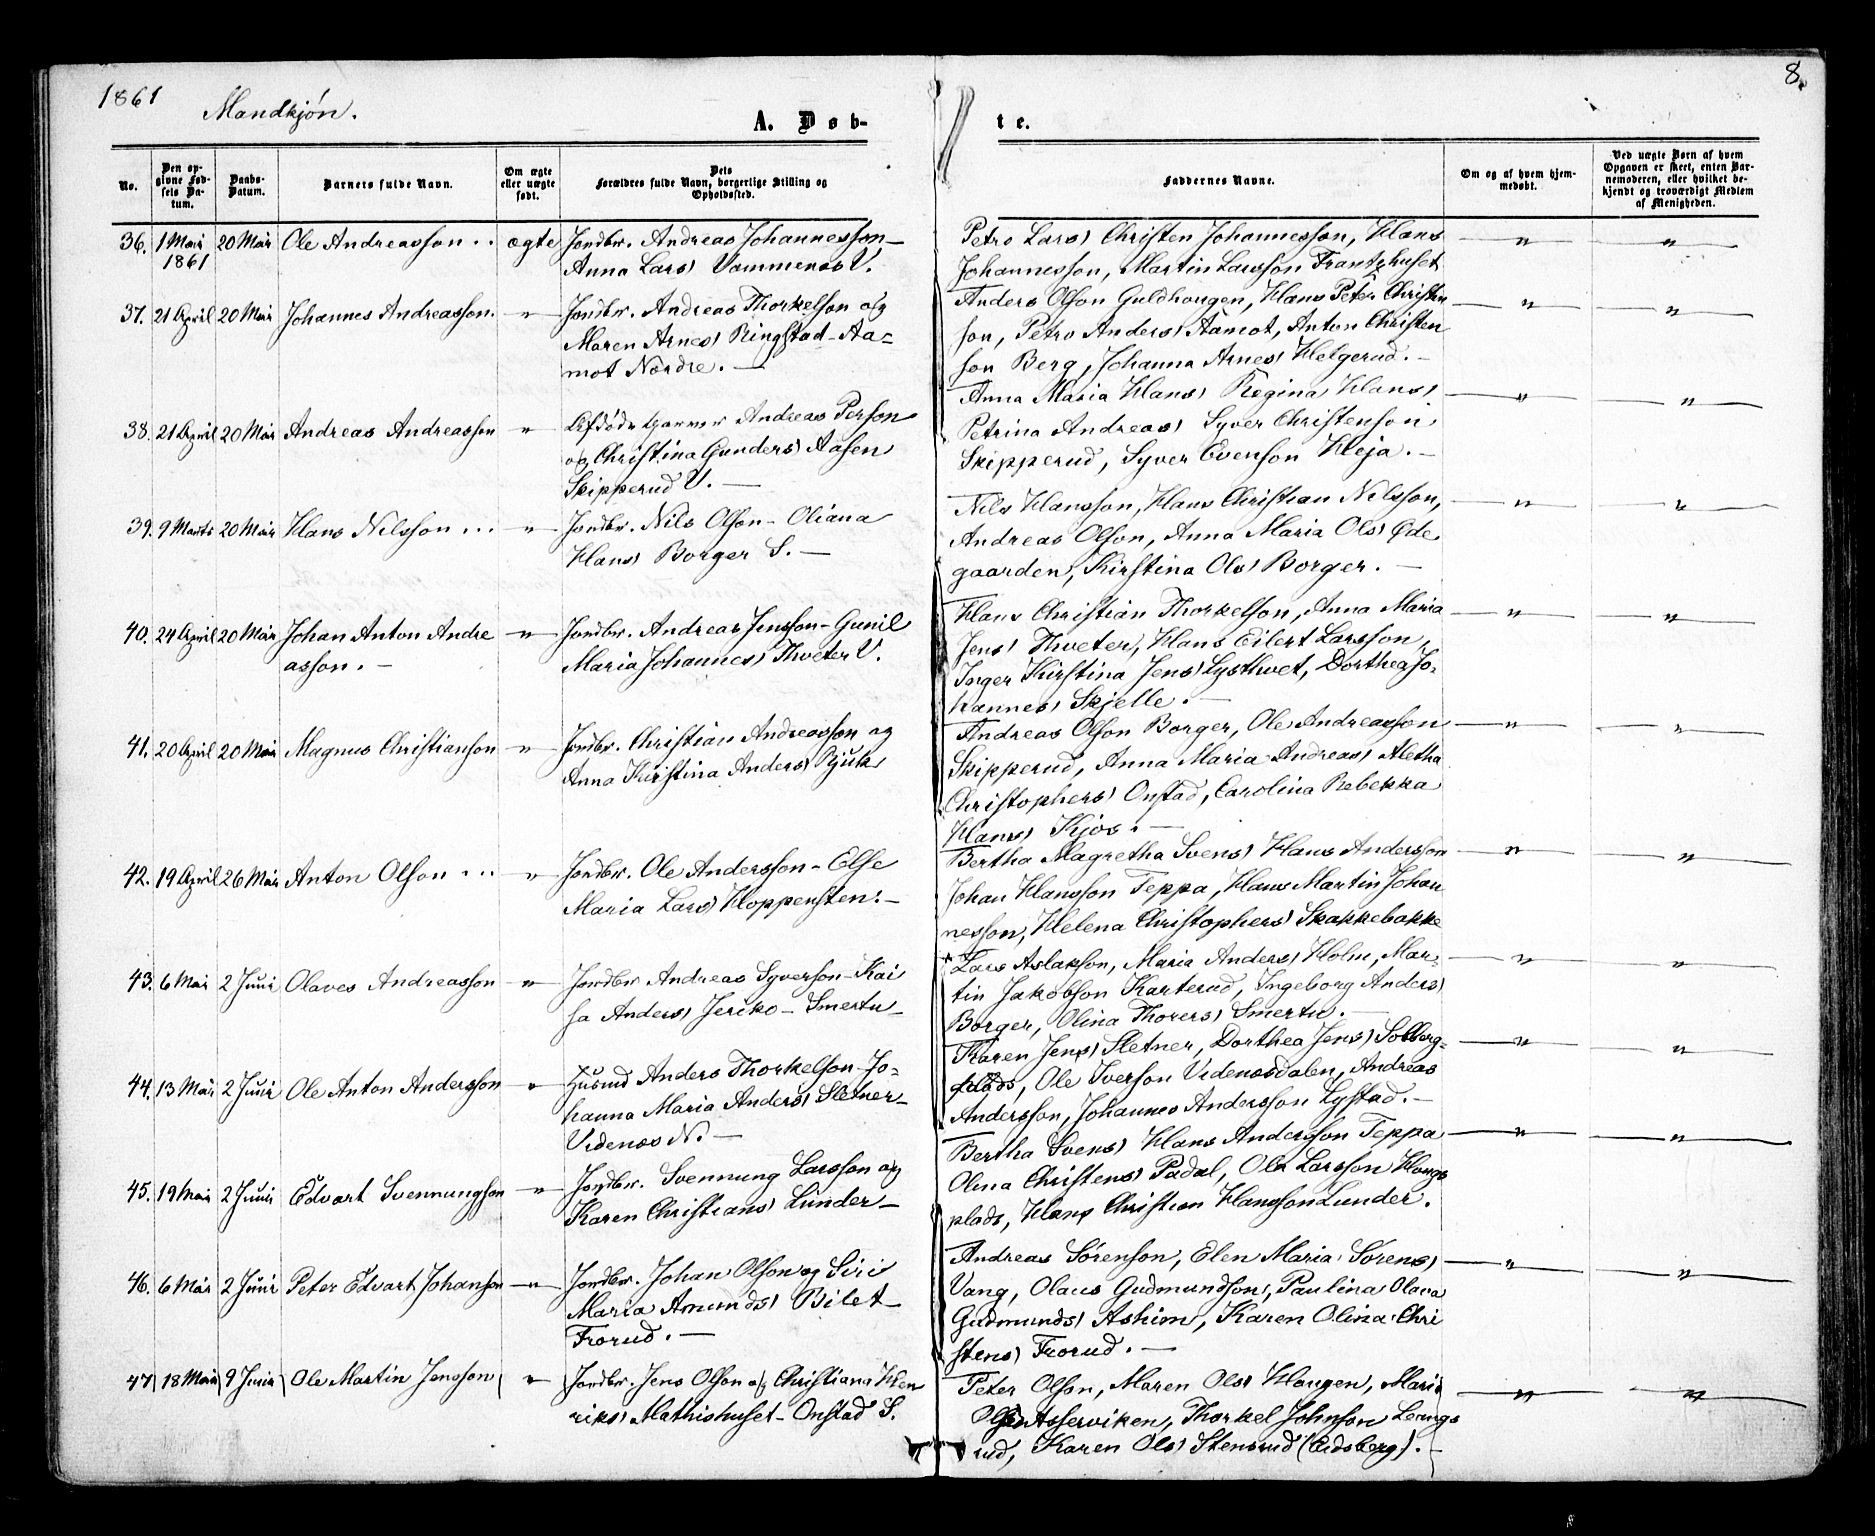 1861
Mandkjøn.
8.
A. Døb-
te.
No.
Den op-
givne Fød-
sels Da-
tum.
Daabs-
Datum.
Barnets fulde Navn.
Om ægte
eller uægte
født.
Dets
Forældres fulde Navn, borgerlige Stilling og
Opholdssted.
Faddernes Navne.
Om og af hvem hjem-
medøbt.
Ved uægte Børn af hvem
Opgaven er skeet, enten Bar-
nemoderen, eller hvilket be-
kjendt og troværdigt Medlem
af Menigheden.
36. 1 Mai 20 Mai Ole Andreasson ægte Jordbr. Andreas Johannesson—
1861
Anna Lars) Vammenæs V.
Petro Lars) Christen Johannesson, Hans
Johannesson, Martin Larsson Frantzhuset
37. 21 April 20 Mai Johannes Andreasson. „ Jordbr. Andreas Thorkelson og
Maren Arnes) Ringstad-Aa-
mot Nordre.—
Anders Olson Guldhougen, Hans Peter Christen
son, Petro Anders) Aamot, Anton Christen
son Berg, Johanna Arnes) Helgerud.—
38. 21 April 20 Mai Andreas Andreasson „ Afdøde Garver Andreas Person
og Christina Gunders) Aasen
Skipperud V.—
Anna Maria Hans) Regina Hans)
Petrina Andreas) Syver Christenson
Skipperud, Syver Evenson Heja.—
39. 9 Marts 20 Mai Hans Nilsson „ Jordbr. Nils Olson—Oliana
Hans) Borger S.—
Nils Hansson, Hans Christian Nilsson,
Andreas Olson, Anna Maria Ols) Øde
gaarden, Kirstina Ols) Borger.—
40. 24 April 20 Mai Johan Anton Andre „ Jordbr. Andreas Jensson—Gunil
asson.—
Maria Johannes) Thveter V.
Hans Christian Thorkelson, Anna Maria
Jens) Thveter, Hans Eilert Larsson,
Inger Kirstina Jens) Lysthvet, Dorthea Jo-
hannes) Skjelle.—
41. 20 April 20 Mai Magnus Christianson „ Jordbr. Christian Andreasson og
Anna Kirstina Anders) Bjuk
Andreas Olson Borger, Ole Andreasson
Skipperud, Anna Maria Andreas) Aletha
Christophers) Onstad, Carolina Rebekka
Hans) Kjos.—
42. 19 April 26 Mai Anton Olson „ Jordbr. Ole Andersson—Else
Maria Lars) Hoppensten.—
Bertha Magretha Svens) Hans Andersson
Johan Hansson Teppa, Hans Martin Johan
nesson, Helena Christophers) Skakkebakke
43. 6 Mai 2 Juni Olaves Andreasson „ Jordbr Andreas Syverson—Kai
sa Anders) Jeriko—Smertu—
Lars Aslakson, Maria Anders) Holm, Mar-
tin Jakobson Karterud, Ingeborg Anders)
Borger, Olina Thorers) Smertu.—
44. 13 Mai 2 Juni Ole Anton Andersson „ Husmd Anders Thorkelson—Jo-
hanna Maria Anders) Sletner—
Videnæs N.—
Karen Jens) Sletner, Dorthea Jens) Solberg-
plads, Ole Iverson Videnæsdalen, Andreas
Andersson, Johannes Andersson Lystad.—
45. 19 Mai 2 Juni Edvart Svennungson „ Jordbr. Svennung Larsson og
Karen Christians) Lunder—
Bertha Svens) Hans Andersson Teppa
Olina Christens) Padal, Ole Larsson Hougs
plads, Hans Christian Hansson Lunder.
46. 6 Mai 2 Juni Peter Edvart Johanson „ Jordbr. Johan Olson og Siri
Maria Amunds) Bilet—
Frorud.—
Andreas Sörenson, Elen Maria Sörens)
Vang, Olaus Gudmundson, Paulina Olava
Gudmunds) Askim, Karen Olina Chri
stens) Frorud.—
47. 18 Mai 9 Juni Ole Martin Jensson „ Jordbr. Jens Olson og Christiana Hen
riks) Mathishuset—Onstad S.
Peter Olson, Maren Ols) Hougen, Mari
Asserviken, Thorkel Johnson
rud, Karen Ols) Stensrud (Eidsberg).—